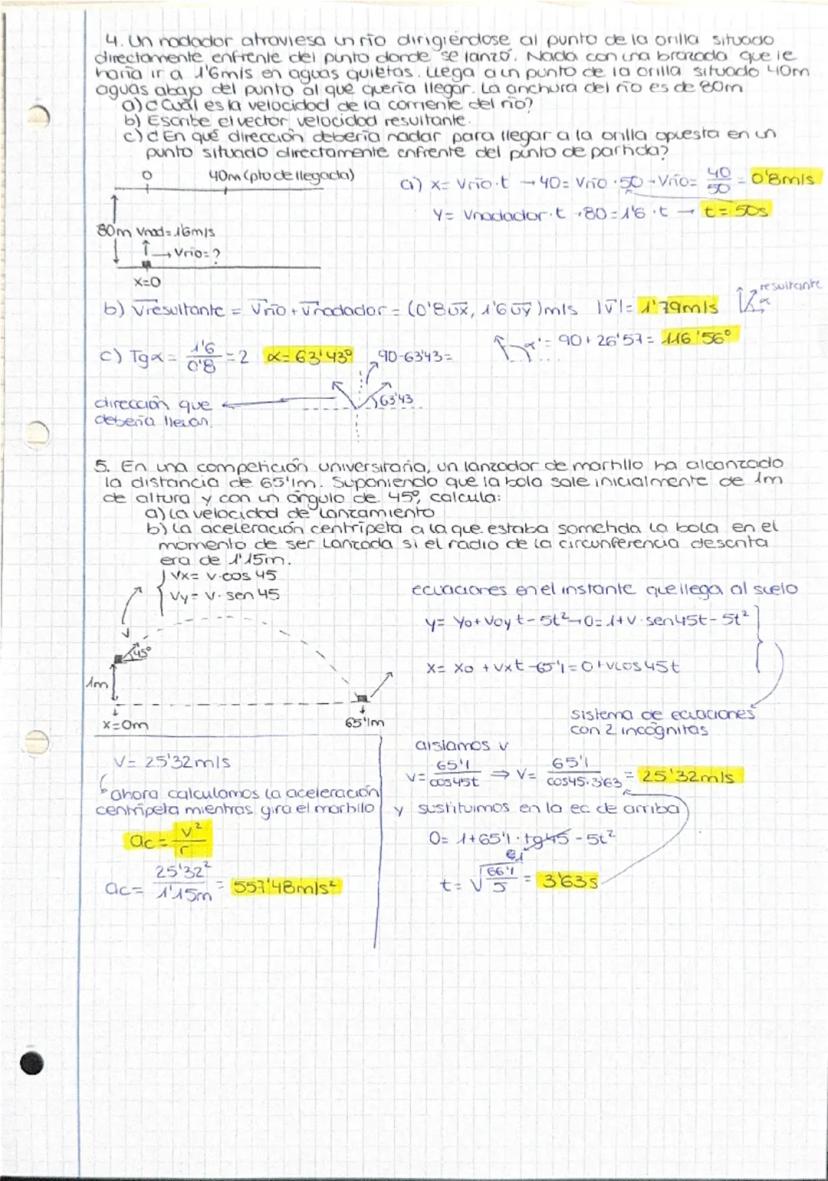 4. Un nadador atraviesa un río dirigiéndose al punto de la orilla situado
directamente enfrente del punto donde se lanzó. Nada con una brazada que le
haría ir a 1'6m/s en aguas quietas. Llega a un punto de la orilla situado 40m
aguas abajo del punto al que quería llegar. La anchura del río es de 80m
a) ¿Cuál es la velocidad de la corriente del río?
b) Escribe el vector velocidad resultante.
c) ¿En qué dirección debería nadar para llegar a la orilla opuesta en un
punto situado directamente enfrente del punto de partida?
0 40m (pto de llegada)
a) x= Vrío·t → 40= Vrío·50 → Vrío= 40/50 = 0'8m/s
y= Vnadador·t → 80=1'6·t → t=50s
80m Vnad=1'6m/s
→ Vrío=?
x=0
b) Vresultante = Vrío + Vnadador = (0'8ux, 1'6uy) m/s |V|= 1'79m/s
resultante
α
c) Tgα = 1'6/0'8 = 2 α= 63'43º 90-63'43=
α'= 90+26'57= 116'56º
63'43
dirección que
debería llevar.
5. En una competición universitaria, un lanzador de martillo ha alcanzado
la distancia de 65'1m. Suponiendo que la bola sale inicialmente de 1m
de altura y con un ángulo de 45º, calcula:
a) La velocidad de lanzamiento
b) La aceleración centrípeta a la que estaba sometida la bola en el
momento de ser lanzada si el radio de la circunferencia descrita
era de 1'15m.
Vx= V·cos 45
Vy= V·sen 45
45º
1m
x=0m
65'1m
ecuaciones en el instante que llega al suelo
y= y0 + V0y t - 5t² → 0=1+V·sen45t - 5t²
x= x0 + Vxt → 65'1=0+Vcos45t
sistema de ecuaciones
con 2 incógnitas
V= 25'32m/s
ahora calculamos la aceleración
centrípeta mientras gira el martillo
ac= V²/r
ac= 25'32²/1'15m = 557'48m/s²
aislamos v
V= 65'1/cos45t ⇒ V= 65'1/cos45·3'63 = 25'32m/s
y sustituimos en la ec de arriba
0= 1+65'1·tg45 - 5t²
1
t= √66'1/5 = 3'63s